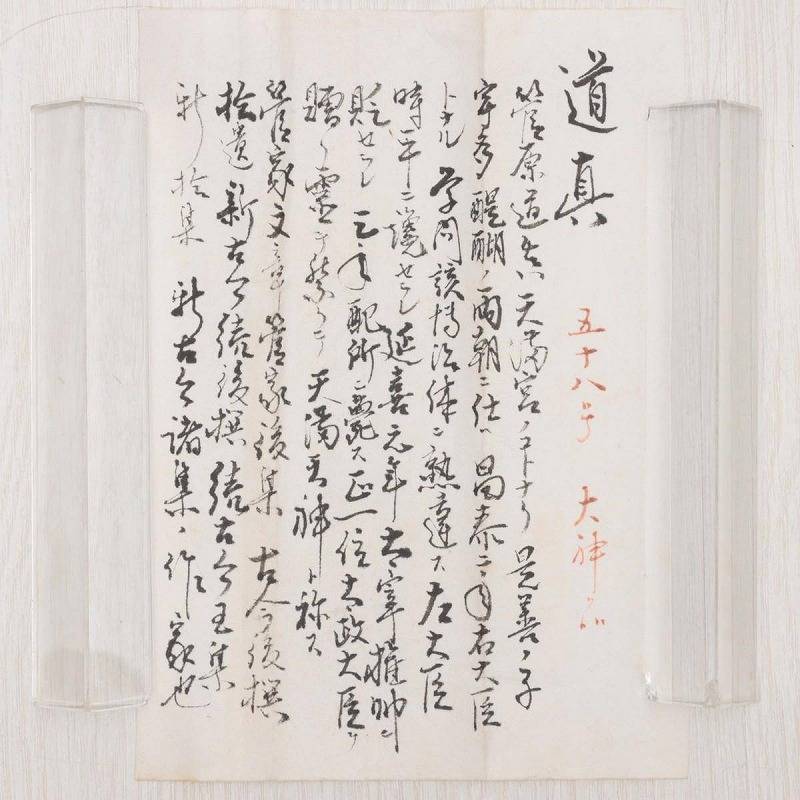 道真
五十八号 大神
菅原道真ハ天満宮ノコトナリ 是善ノ子
宇多醍醐ノ両朝ニ仕ヘ昌泰二年右大臣
トナル 学問該博治体ニ熟達ス 左大臣
時平ニ讒セラレ延喜元年太宰権帥ニ
貶セラレ三年配所ニ薨ス 正一位太政大臣ヲ
贈リ霊ヲ祭リテ天満天神ト称ス
菅家文章 菅家後集 古今後撰
拾遺 新古今 続後撰 続古今 玉集
新拾集 新古今諸集ノ作家也